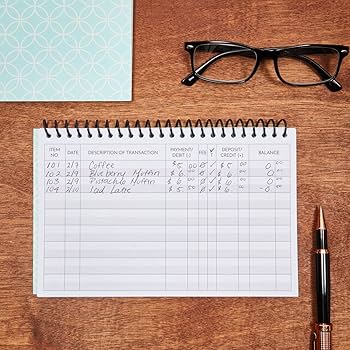 ITEM NO DATE DESCRIPTION OF TRANSACTION PAYMENT/DEBIT (-) FEE ✓ T DEPOSIT/CREDIT (+) BALANCE
101 2/7 Coffee $5 00 Ø ✓ $5 00 0 00
102 2/9 Blueberry Muffin $6 00 Ø ✓ $6 00 0 00
103 2/9 Pistachio Muffin $6 00 Ø ✓ $6 00 0 00
104 2/10 Iced Latte $5 50 Ø ✓ $ 50